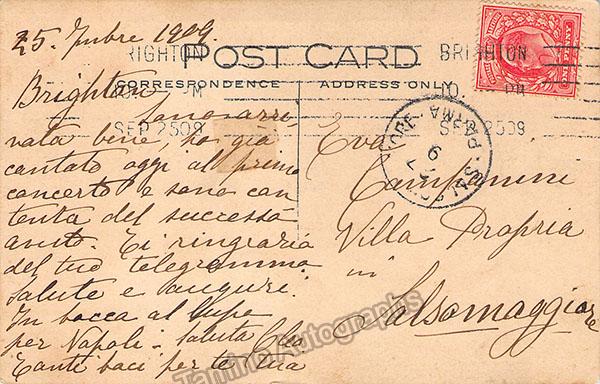 25. 7mbre 1909.
BRIGHTON
POST CARD
BRIGHTON
CORRESPONDENCE
ADDRESS ONLY
SEP 25 09
SEP 25 09
Brighton
Sono arri
vata bene, ho già
cantato oggi al primo
concerto e sono con
tenta del successo
avuto. Ti ringrazio
del tuo telegramma.
Salute e auguri.
In bocca al lupo
per Napoli - saluta Cleo
Tanti baci per te tua
Eva
Campanini
Villa Propria
in
Salsomaggiore
PARMA
Tamino Autographs